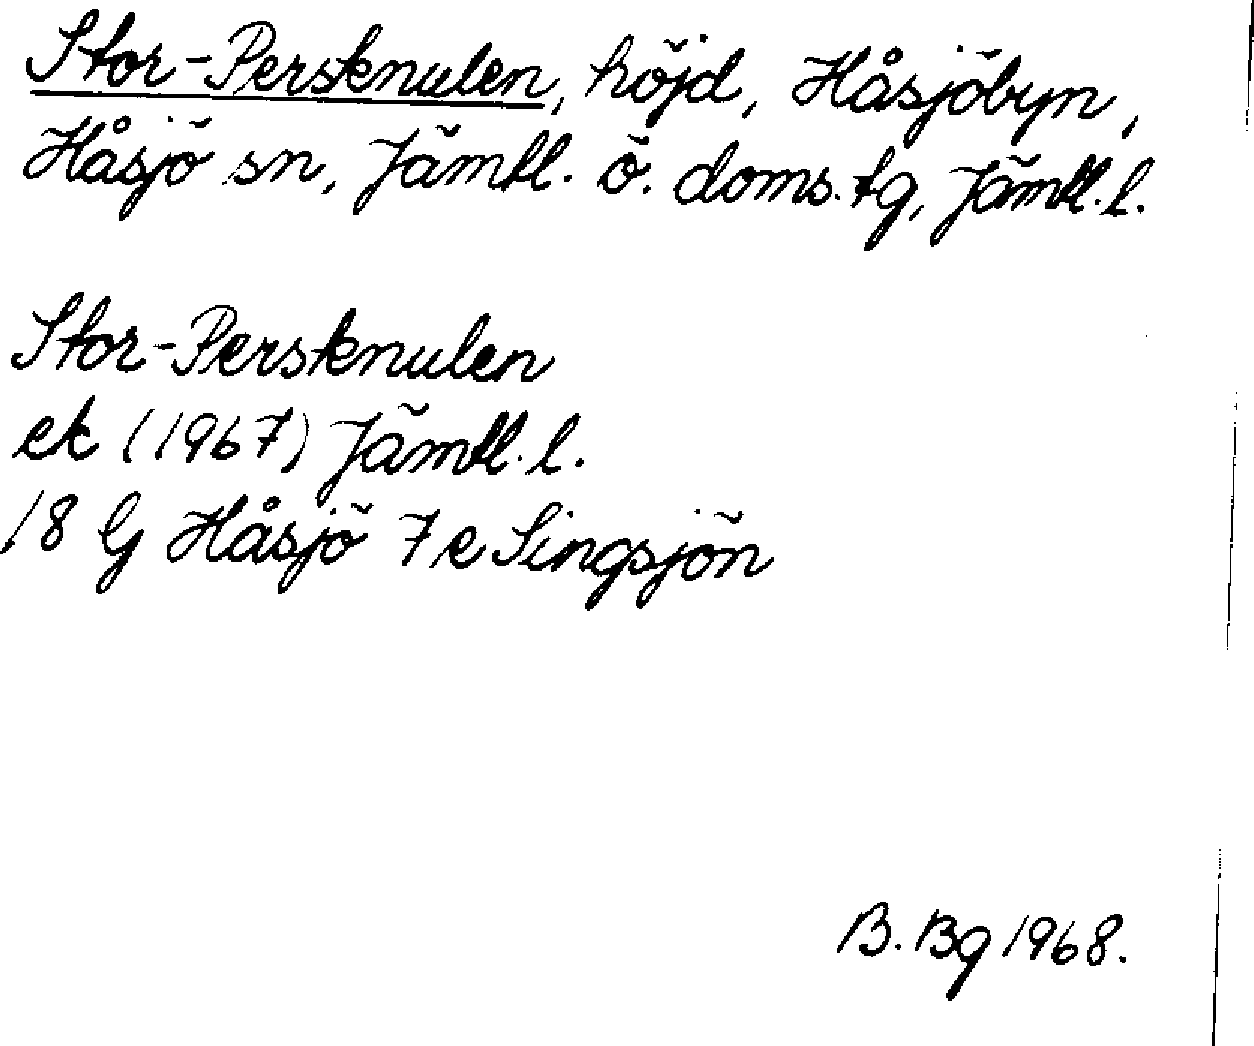 Stor-Persknulen, höjd, Håsjöbyn,
Håsjö sn, Jämtl. ö. doms.tg, Jämtl.l.
Stor-Persknulen
ek (1967) Jämtl.l.
18 G Håsjö 7e Singsjön
B. Bg 1968.